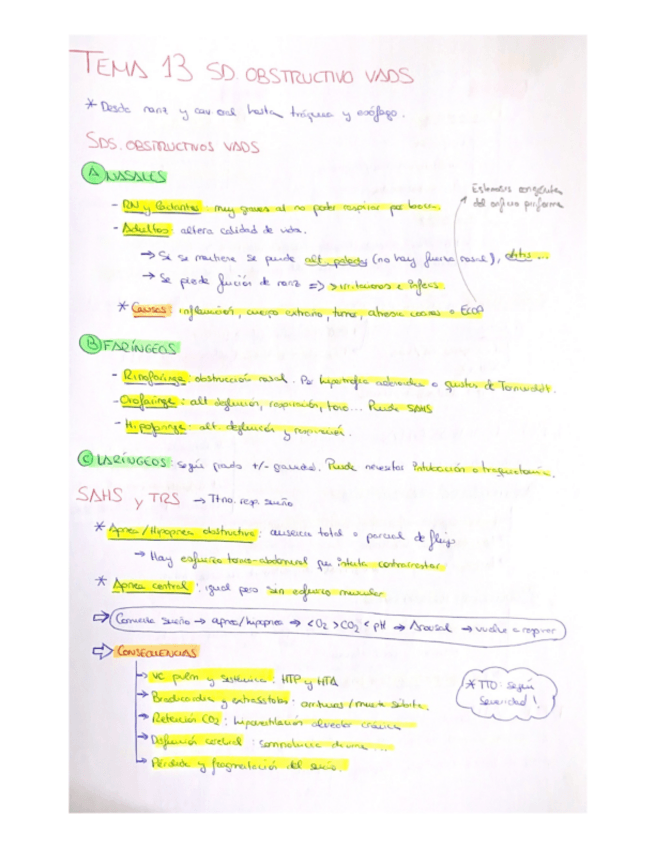 TEMA 13 SD. OBSTRUCTIVO VADS
* Desde nariz y cav. oral hasta tráquea y esófago.
SDS. OBSTRUCTIVOS VADS
A NASALES
Estenosis congénita
del orificio piriforme
- RN y Lactantes: muy graves al no poder respirar por boca.
- Adultos: altera calidad de vida.
→ Si se mantiene se puede alt. (no hay fuerza nasal), otitis ...
→ Se pierde función de nariz => > irritaciones e infecs.
* Causas: inflamación, cuerpo extraño, tumor, atresia coanas o ECOP
B FARÍNGEOS
- Rinofaringe: obstrucción nasal. Por hipertrofia adenoidea o quistes de Tornwaldt.
- Orofaringe: alt. deglución, respiración, tono... Puede SAHS
- Hipofaringe: alt. deglución y respiración.
C LARÍNGEOS: según grado +/- gravedad. Puede necesitar intubación o traqueotomía.
SAHS y TRS → Ttno. resp. sueño
* Apnea/Hipopnea obstructiva: ausencia total o parcial de flujo
→ Hay esfuerzo toraco-abdominal que intenta contrarrestar
* Apnea central: igual pero sin esfuerzo muscular
⇒ Comienza sueño → apnea/hipopnea → <O2 >CO2 < pH → Arousal → vuelve a respirar
⇒ CONSECUENCIAS
→ VC pulm y sistémica: HTP y HTA
→ Bradicardia y extrasístoles: arritmias / muerte súbita.
→ Retención CO2: hipoventilación alveolar crónica
→ Disfunción cerebral: somnolencia diurna...
→ Pérdida y fragmentación del sueño.
* TTO: según
severidad!